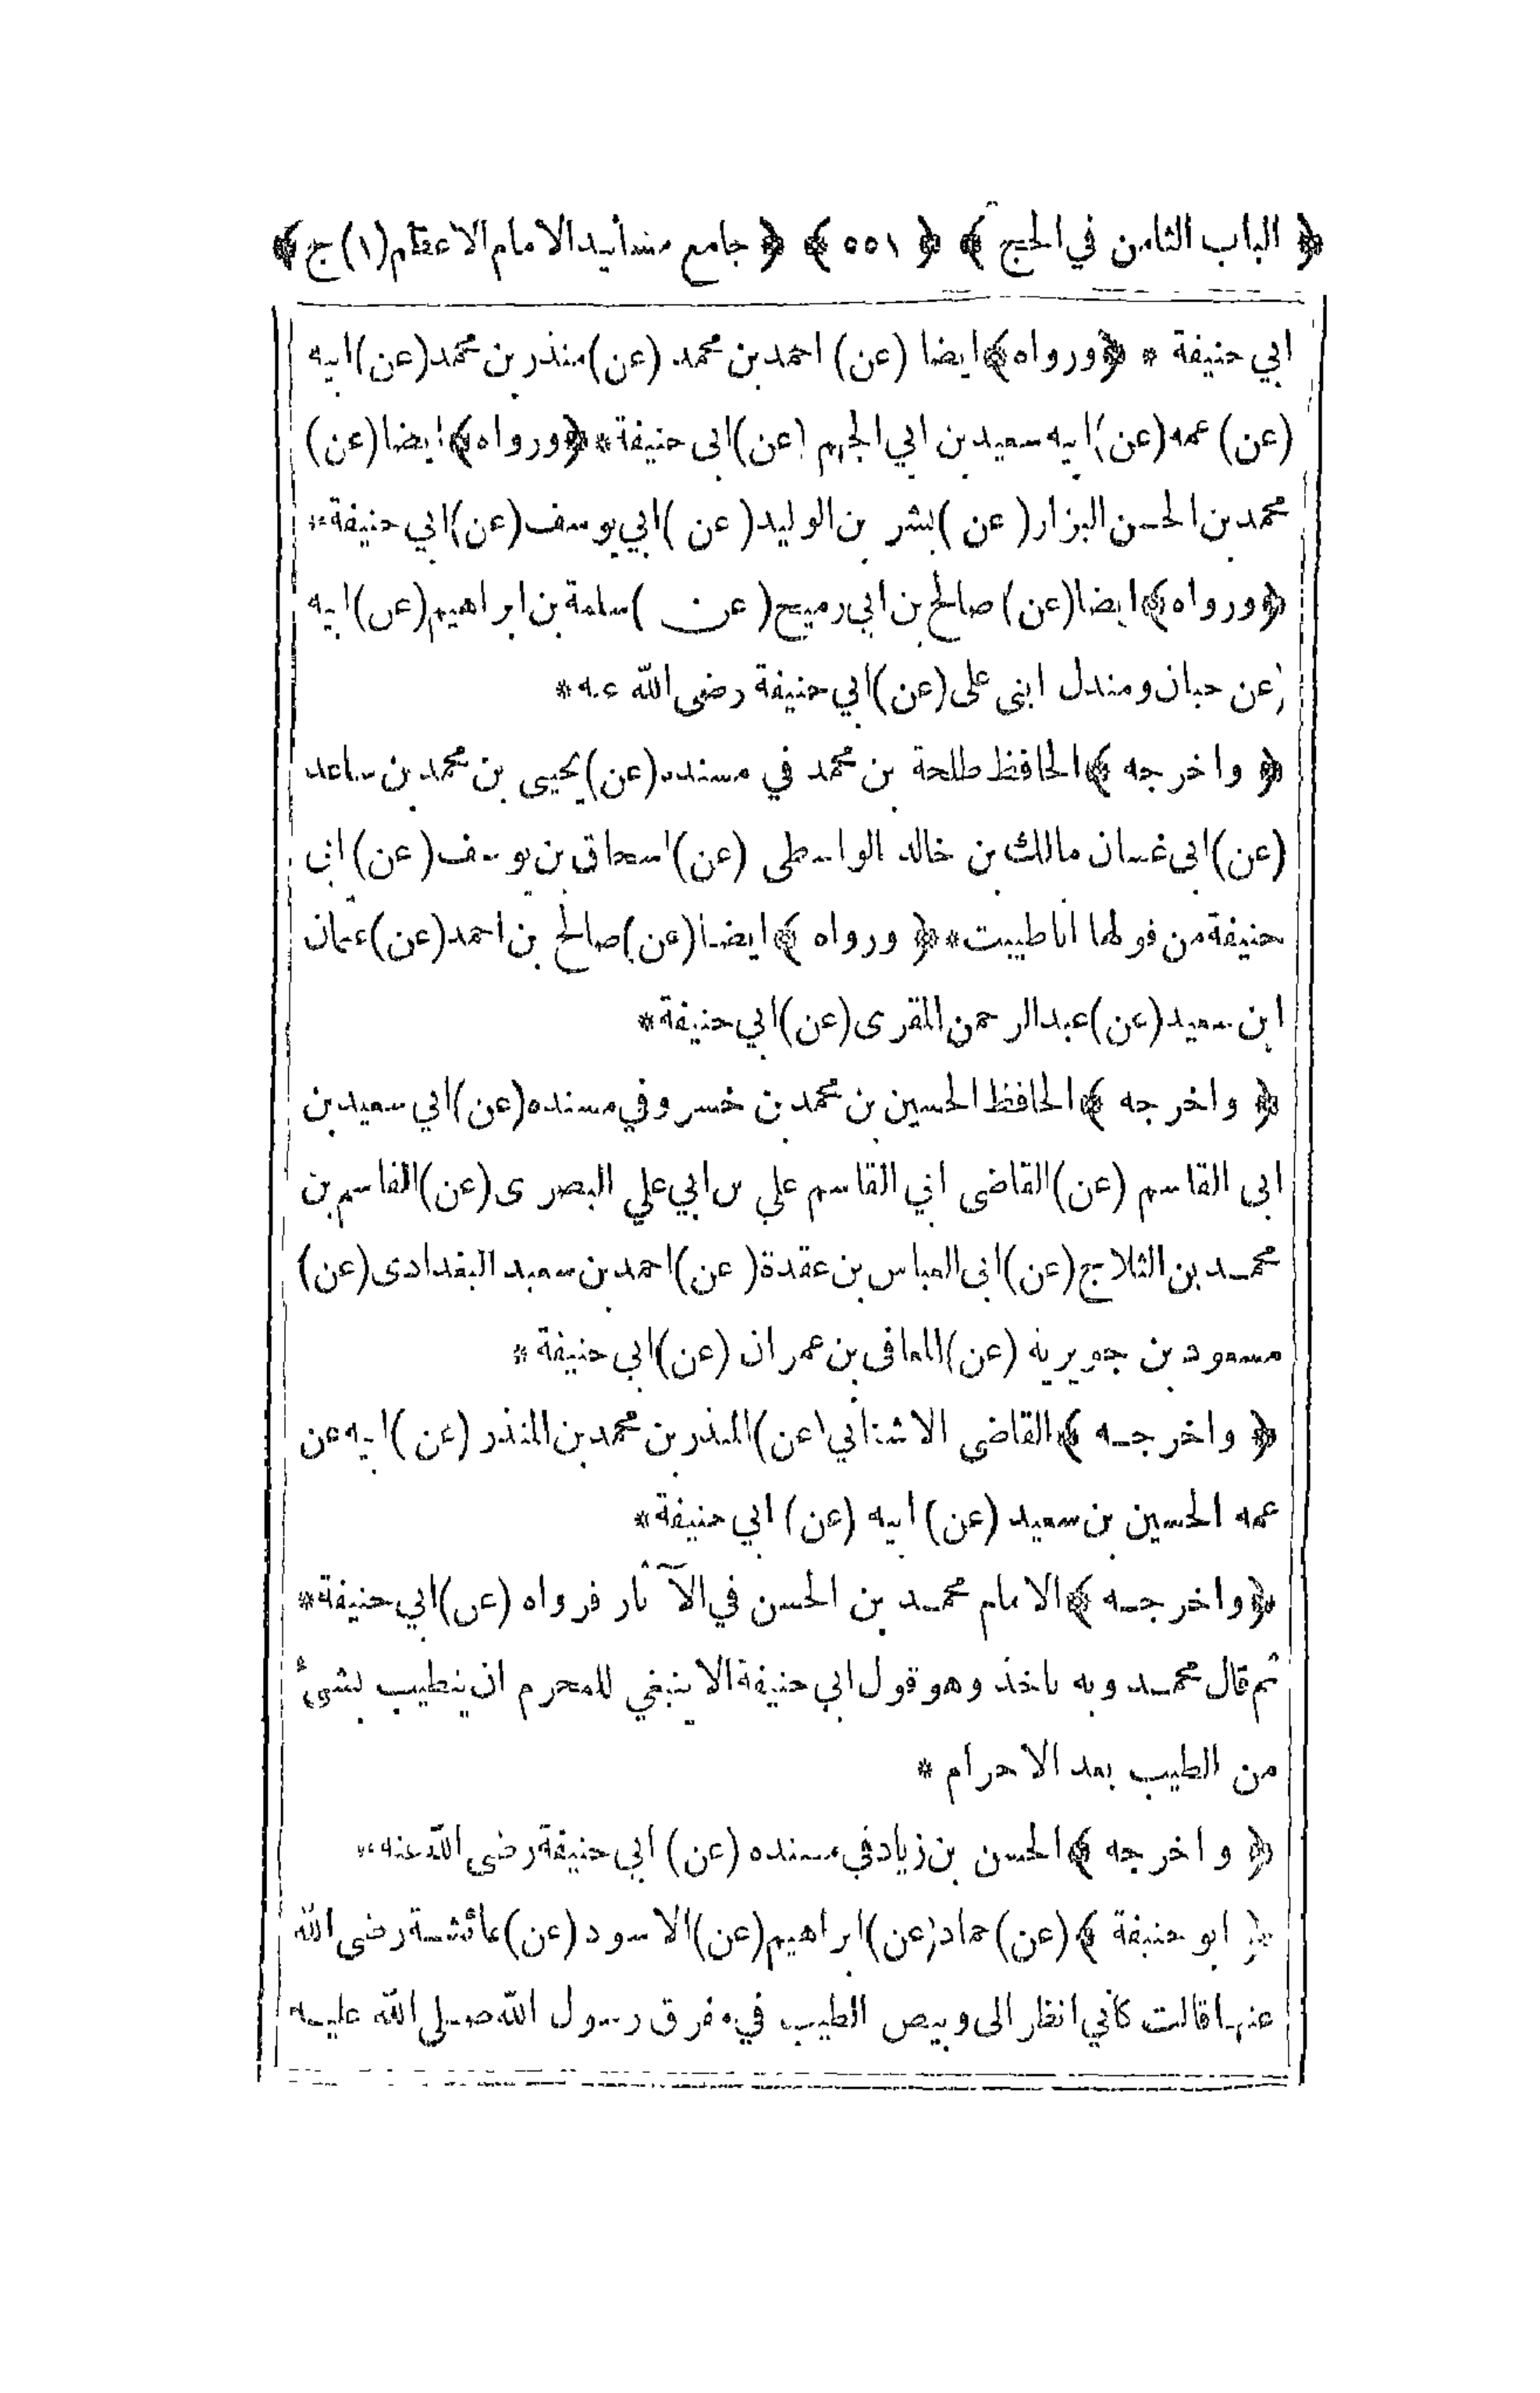 ﴿ الباب الثامن في الحج ﴾ ﴿ ٥٥١ ﴾ ﴿ جامع مسانيد الامام الاعظم (١) ج ﴾
ابي حنيفة * ﴿ورواه﴾ ايضا (عن) احمد بن محمد (عن) منذر بن محمد (عن) ابيه
(عن) عمه (عن) ابيه سعيد بن ابي الجهم (عن) ابى حنيفة * ﴿ورواه﴾ ايضا (عن)
محمد بن الحسن البزار (عن) بشر بن الوليد (عن) ابي يوسف (عن) ابي حنيفة *
﴿ورواه﴾ ايضا (عن) صالح بن ابي رميح (عن) سلمة بن ابراهيم (عن) ابيه
(عن حبان ومندل ابنى على (عن) ابي حنيفة رضى الله عنه *
﴿ واخرجه ﴾ الحافظ طلحة بن محمد في مسنده (عن) يحيى بن محمد بن ساعد
(عن) ابى غسان مالك بن خالد الواسطى (عن) اسحاق بن يوسف (عن) ابى
حنيفة من قولها انا طيبت * ﴿ ورواه ﴾ ايضا (عن) صالح بن احمد (عن) عثمان
ابن سعيد (عن) عبد الرحمن المقرى (عن) ابي حنيفة *
﴿ واخرجه ﴾ الحافظ الحسين بن محمد بن خسرو في مسنده (عن) ابي سعيد بن
ابى القاسم (عن) القاضى ابي القاسم علي بن ابي علي البصرى (عن) القاسم بن
محمد بن الثلاج (عن) ابى العباس بن عقدة (عن) احمد بن سعيد البغدادى (عن)
مسعود بن جويرية (عن) المعافى بن عمران (عن) ابي حنيفة *
﴿ واخرجه ﴾ القاضى الاشنانى (عن) المنذر بن محمد بن المنذر (عن) ابيه عن
عمه الحسين بن سعيد (عن) ابيه (عن) ابي حنيفة *
﴿ واخرجه ﴾ الامام محمد بن الحسن في الآثار فرواه (عن) ابي حنيفة *
ثم قال محمد وبه ناخذ وهو قول ابي حنيفة لا ينبغي للمحرم ان يتطيب بشئ
من الطيب بعد الاحرام *
﴿ واخرجه ﴾ الحسن بن زياد في مسنده (عن) ابي حنيفة رضى الله عنه *
﴿ ابو حنيفة ﴾ (عن) حماد (عن) ابراهيم (عن) الاسود (عن) عائشة رضى الله
عنها قالت كأني انظر الى وبيص الطيب في مفرق رسول الله صلى الله عليه